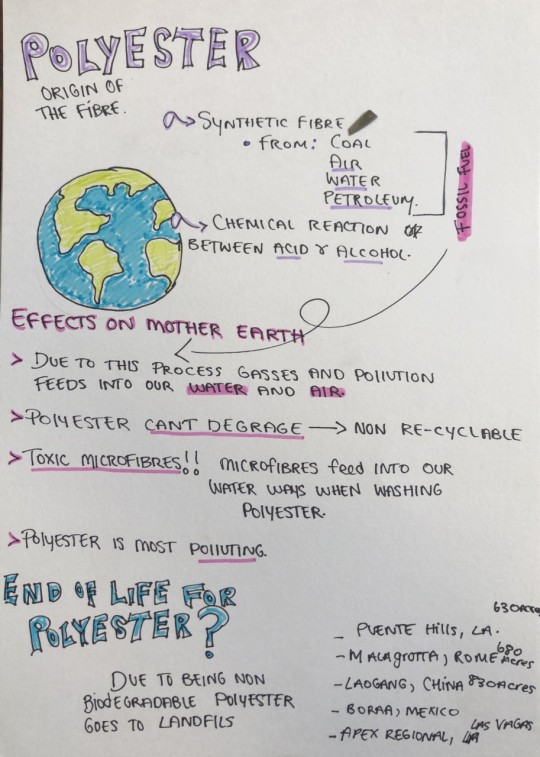 POLYESTER
ORIGIN OF
THE FIBRE.
SYNTHETIC FIBRE
• FROM: COAL
AIR
WATER
PETROLEUM.
FOSSIL FUEL
CHEMICAL REACTION OF
BETWEEN ACID & ALCOHOL.
EFFECTS ON MOTHER EARTH
> DUE TO THIS PROCESS GASSES AND POLLUTION
FEEDS INTO OUR WATER AND AIR.
> POLYESTER CANT DEGRAGE → NON RE-CYCLABLE
> TOXIC MICROFIBRES!! MICROFIBRES feed INTO OUR
WATER WAYS WHEN WASHING
POLYESTER.
> POLYESTER IS MOST POLLUTING.
END OF LIFE FOR
POLYESTER?
DUE TO BEING NON
BIODEGRADABLE POLYESTER
GOES TO LANDFILS
630 Acres
– PUENTE Hills, LA.
– MALAGROTTA, ROME 680 Acres
– LAOGANG, CHINA 830 Acres
– BORAA, MEXICO
– APEX REGIONAL, LAS VAGAS